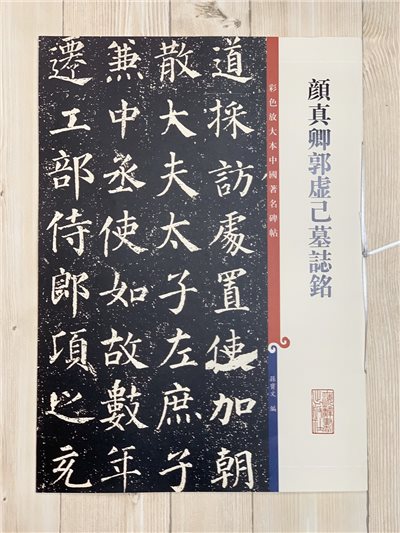 顔真卿郭虛己墓誌銘
彩色放大本中國著名碑帖
孫寶文 編
道採訪處置使加朝
散大夫太子左庶子
兼中丞使如故數年
遷工部侍郎頃之充